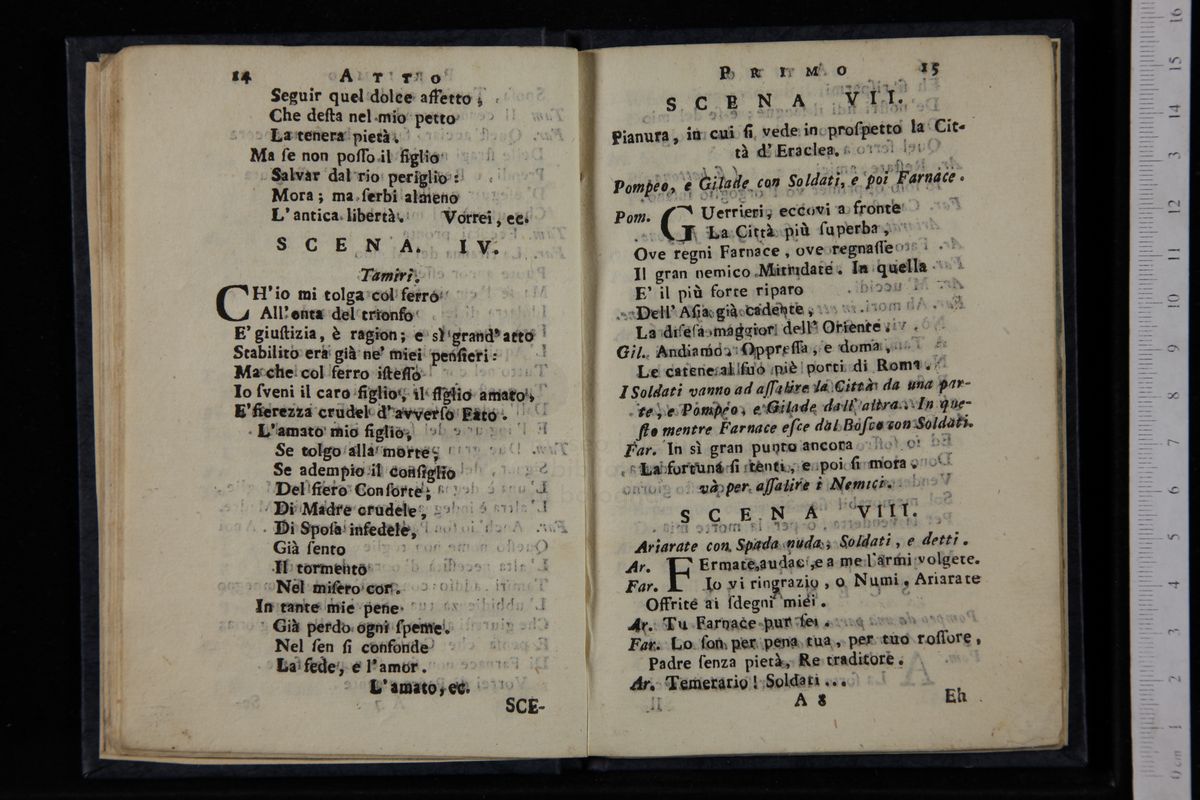 14 ATTO
Seguir quel dolce affetto,
Che desta nel mio petto
La tenera pietà.
Ma se non posso il figlio
Salvar dal rio periglio:
Mora; ma serbi almeno
L'antica libertà. Vorrei, ec.
SCENA. IV.
Tamiri.
CH'io mi tolga col ferro
All'onta del trionfo
E' giustizia, è ragion; e sì grand' atto
Stabilito era già ne' miei pensieri:
Ma che col ferro istesso
Io sveni il caro figlio, il figlio amato,
E' fierezza crudel d'avverso Fato.
L'amato mio figlio,
Se tolgo alla morte,
Se adempio il consiglio
Del fiero Consorte;
Di Madre crudele,
Di Sposa infedele,
Già sento
Il tormento
Nel misero cor.
In tante mie pene
Già perdo ogni speme.
Nel sen si confonde
La fede, e l'amor.
L'amato, ec.
SCE-
PRIMO 15
SCENA VII.
Pianura, in cui si vede in prospetto la Cit-
tà d'Eraclea.
Pompeo, e Gilade con Soldati, e poi Farnace.
Pom. GUerrieri, eccovi a fronte
La Città più superba,
Ove regni Farnace, ove regnasse
Il gran nemico Mitridate. In quella
E' il più forte riparo
Dell' Asia già cadente,
La difesa maggior dell' Oriente.
Gil. Andiamo. Oppressa, e doma,
Le catene al suo piè porti di Roma.
I Soldati vanno ad assalire la Città da una par-
te, e Pompeo, e Gilade dall' altra. In que-
sto mentre Farnace esce dal Bosco con Soldati.
Far. In sì gran punto ancora
La fortuna si tenti, e poi si mora.
và per assalire i Nemici.
SCENA VIII.
Ariarate con Spada nuda, Soldati, e detti.
Ar. FErmate, audaci, e a me l'armi volgete.
Far. Io vi ringrazio, o Numi. Ariarate
Offrite ai sdegni miei.
Ar. Tu Farnace pur sei.
Far. Lo son per pena tua, per tuo rossore,
Padre senza pietà, Re traditore.
Ar. Temerario! Soldati...
A 8 Eh
0 cm 1 2 3 4 5 6 7 8 9 10 11 12 13 14 15 16